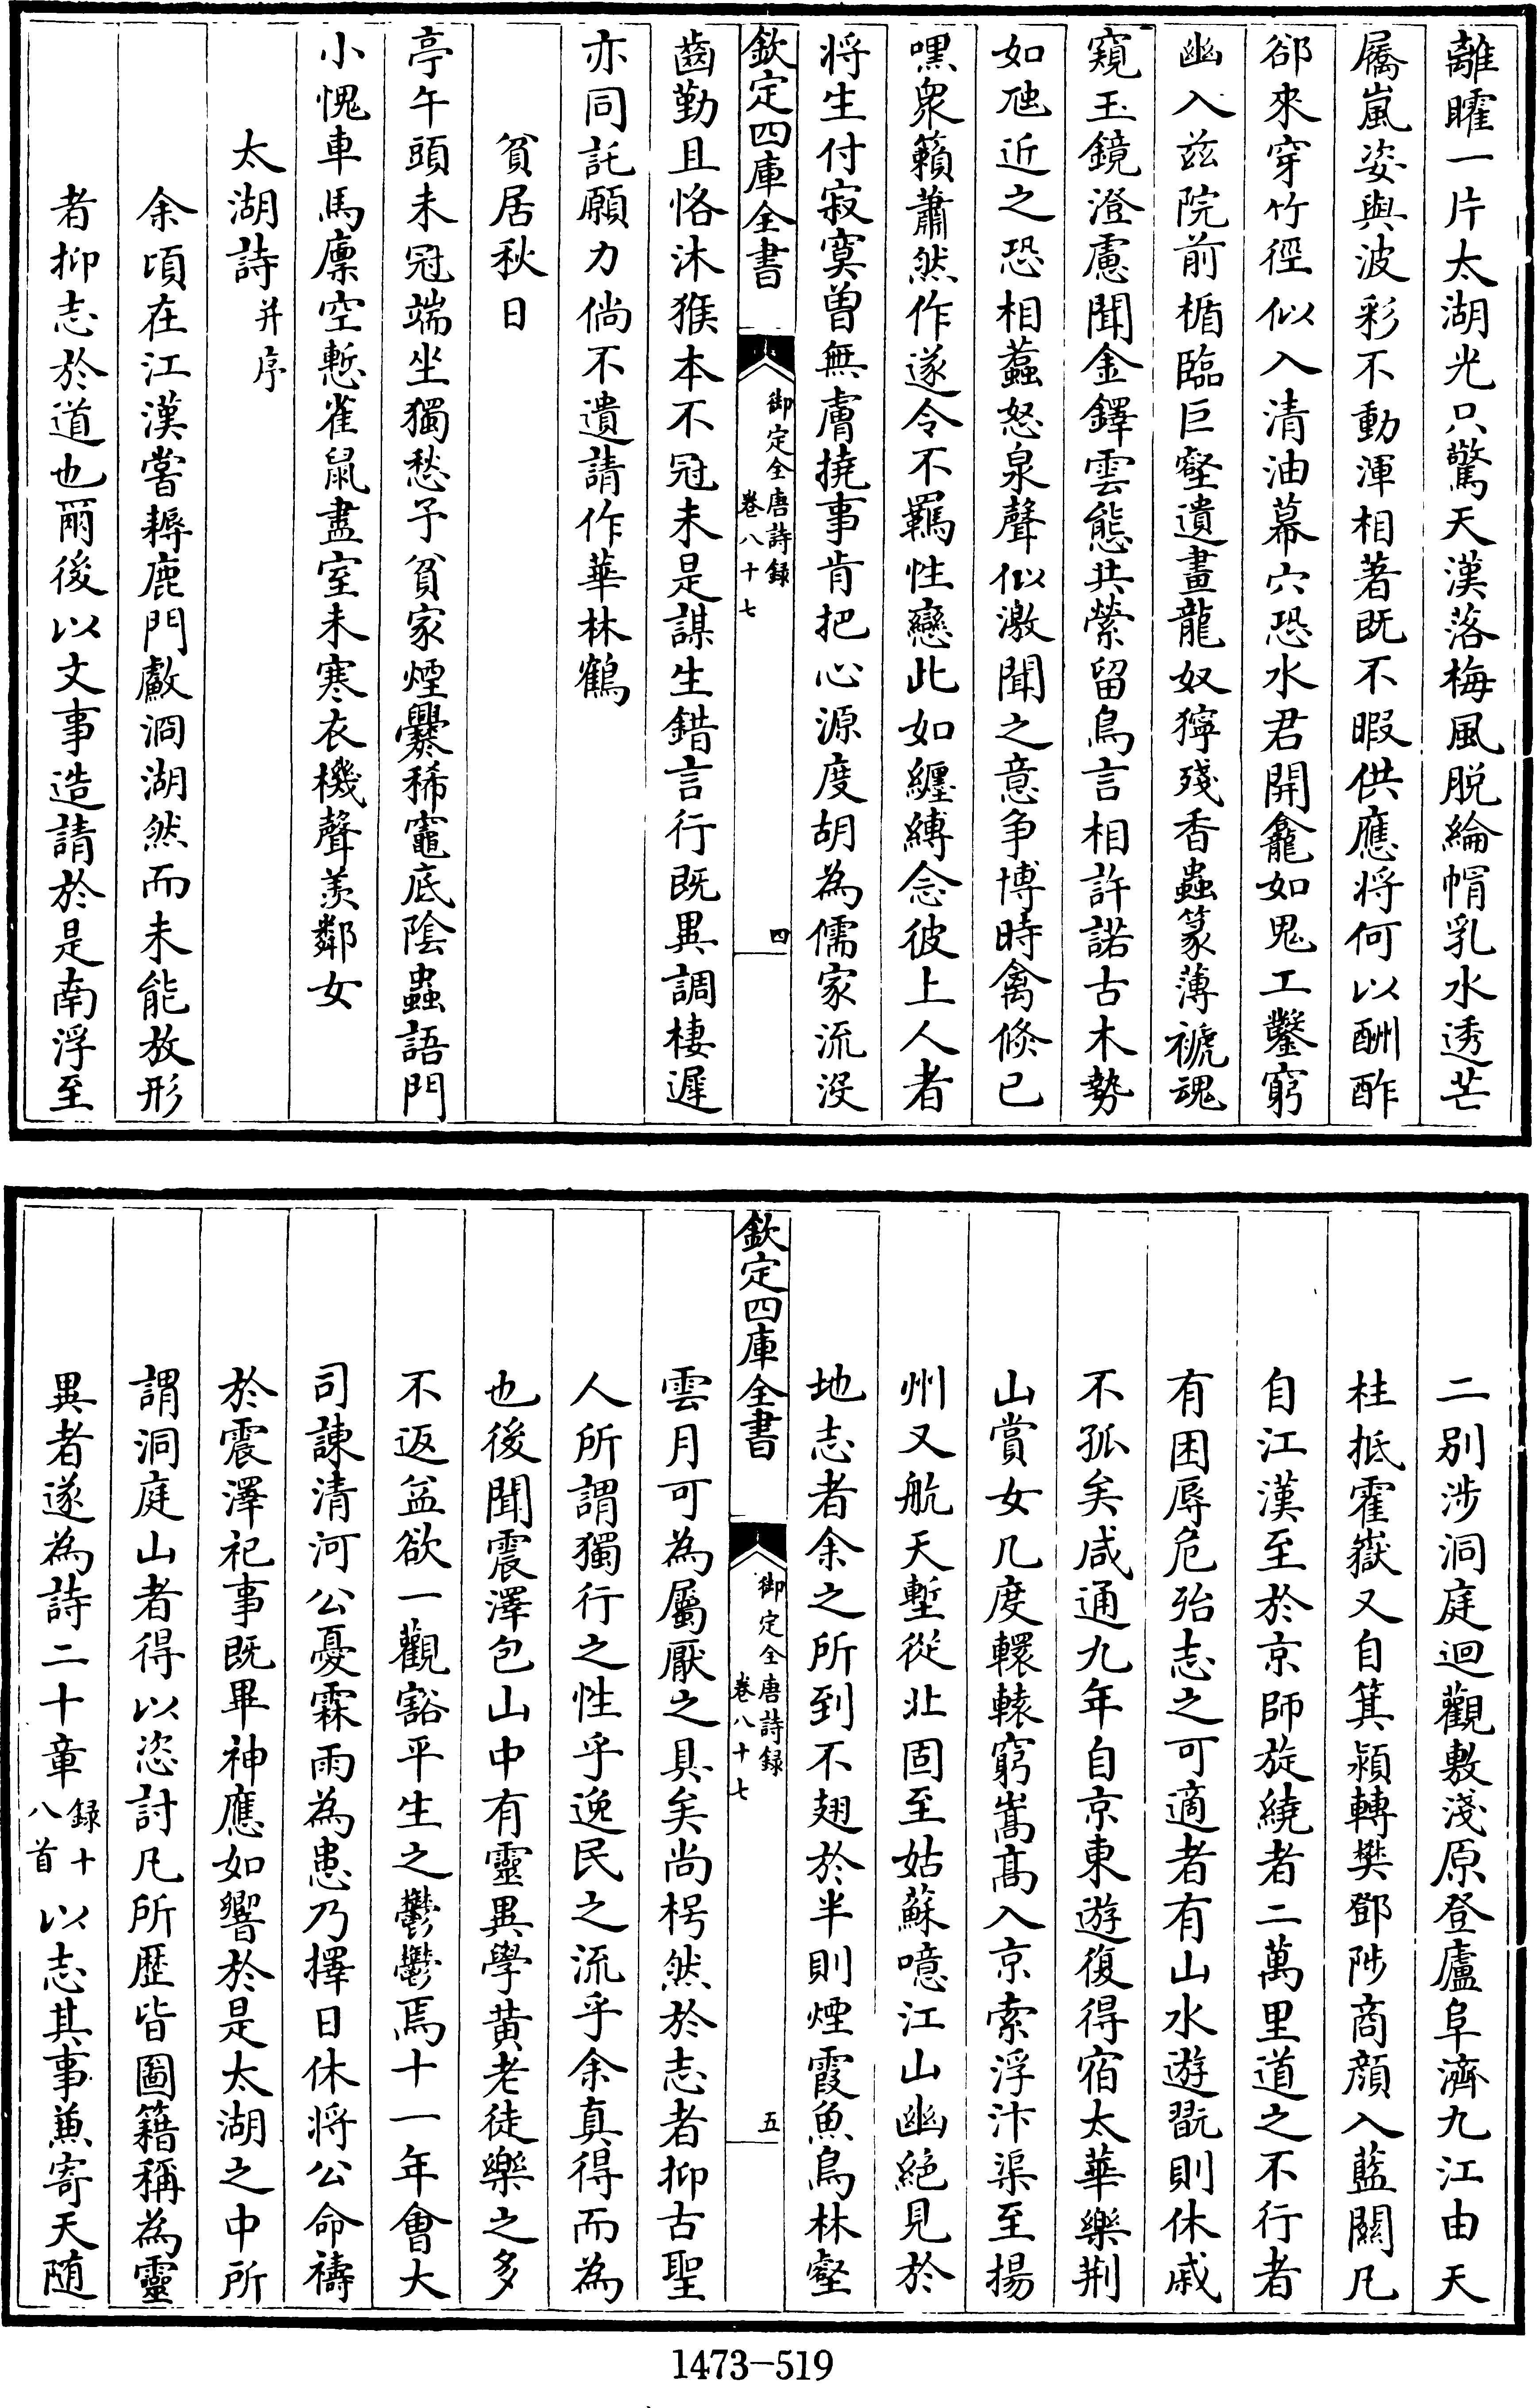 離㬦一片太湖光只驚天漢落梅風脱綸帽乳水透芒
屩嵐姿與波彩不動渾相著既不暇供應將何以酬酢
郤來穿竹徑似入清油幕穴恐水君開龕如鬼工鑿窮
幽入兹院前楯臨巨壑遺畫龍奴獰殘香蟲篆薄褫魂
窺玉鏡澄慮聞金鐸雲態共縈留鳥言相許諾古木勢
如虺近之恐相蠚怒泉聲似激聞之意爭博時禽倏已
嘿衆籟蕭然作遂令不羈性戀此如纏縛念彼上人者
將生付寂寞曾無膚撓事肯把心源度胡為儒家流没
欽定四庫全書
御定全唐詩録
卷八十七
四
齒勤且恪沐猴本不冠未是謀生錯言行既異調棲遲
亦同託願力倘不遺請作華林鶴
貧居秋日
亭午頭未冠端坐獨愁予貧家煙爨稀竈底陰蟲語門
小愧車馬廪空慙雀鼠盡室未寒衣機聲羨鄰女
太湖詩并序
余頃在江漢嘗耨鹿門䱷洞湖然而未能放形
者抑志於道也爾後以文事造請於是南浮至
二别涉洞庭迴觀敷淺原登廬阜濟九江由天
柱抵霍嶽又自箕潁轉樊鄧陟商顔入藍關凡
自江漢至於京師旋繞者二萬里道之不行者
有困辱危殆志之可適者有山水遊翫則休戚
不孤矣咸通九年自京東遊復得宿太華樂荆
山賞女几度轘轅窮嵩高入京索浮汴渠至揚
州又航天塹從北固至姑蘇噫江山幽絶見於
地志者余之所到不翅於半則煙霞魚鳥林壑
欽定四庫全書
御定全唐詩録
卷八十七
五
雲月可為屬厭之具矣尚枵然於志者抑古聖
人所謂獨行之性乎逸民之流乎余真得而為
也後聞震澤包山中有靈異學黄老徒樂之多
不返益欲一觀豁平生之鬱鬱焉十一年會大
司諫清河公憂霖雨為患乃擇日休將公命禱
於震澤祀事既畢神應如響於是太湖之中所
謂洞庭山者得以恣討凡所歷皆圖籍稱為靈
異者遂為詩二十章録十八首以志其事兼寄天随
1473-519